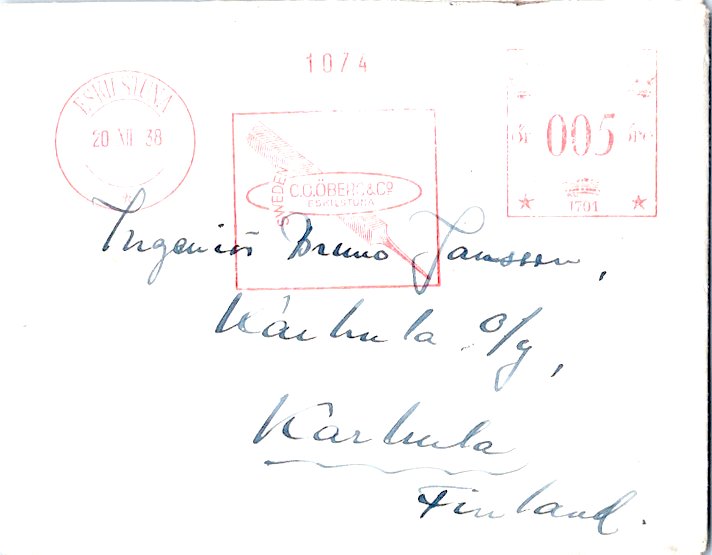 1074
ESKILSTUNA
20 XII 38
SWEDEN
C.O.ÖBERG & Co
ESKILSTUNA
005
öre
1701
Ingeniör Bruno Jansson,
Karhula o/y,
Karhula
Finland.